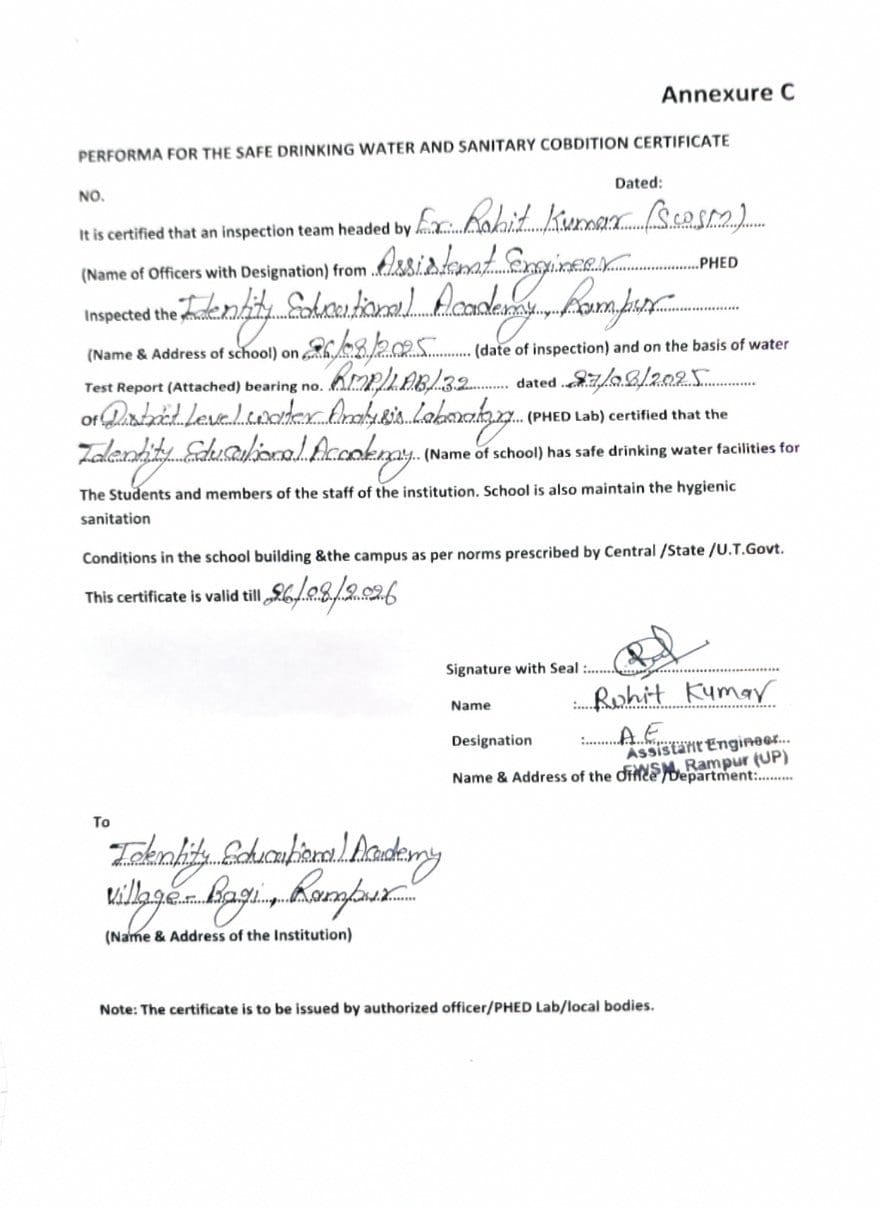 Annexure C
PERFORMA FOR THE SAFE DRINKING WATER AND SANITARY COBDITION CERTIFICATE
Dated:
NO.
It is certified that an inspection team headed by Er. Rohit Kumar (SCOSM)
(Name of Officers with Designation) from Assistant Engineer PHED
Inspected the Identity Educational Academy, Rampur
(Name & Address of school) on 26/08/2025 (date of inspection) and on the basis of water
Test Report (Attached) bearing no. RMP/LAB/32 dated 27/08/2025
of District Level water Analysis Laboratory (PHED Lab) certified that the
Identity Educational Academy. (Name of school) has safe drinking water facilities for
The Students and members of the staff of the institution. School is also maintain the hygienic
sanitation
Conditions in the school building &the campus as per norms prescribed by Central /State /U.T.Govt.
This certificate is valid till 26/08/2026
Signature with Seal :
Name : Rohit Kumar
Designation : A.E.
Assistant Engineer
EWSM, Rampur (UP)
Name & Address of the Office /Department:
To
Identity Educational Academy
Village- Bagi, Rampur
(Name & Address of the Institution)
Note: The certificate is to be issued by authorized officer/PHED Lab/local bodies.